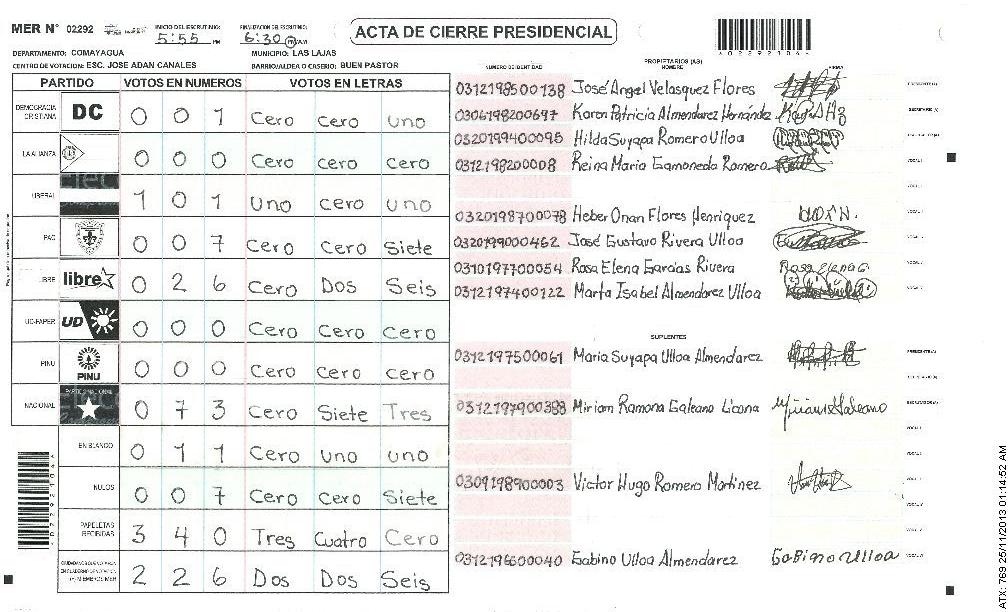 MER N° 02292 INICIO DEL ESCRUTINIO: 5:55 PM FINALIZACION DEL ESCRUTINIO: 6:30 PM/AM ACTA DE CIERRE PRESIDENCIAL
DEPARTAMENTO: COMAYAGUA MUNICIPIO: LAS LAJAS
CENTRO DE VOTACION: ESC. JOSE ADAN CANALES BARRIO/ALDEA O CASERIO: BUEN PASTOR
PARTIDO VOTOS EN NUMEROS VOTOS EN LETRAS
DEMOCRACIA CRISTIANA DC 0 0 1 Cero cero uno
LA ALIANZA 0 0 0 Cero cero cero
LIBERAL 1 0 1 uno cero uno
PAC 0 0 7 Cero Cero Siete
LIBRE libre 0 2 6 Cero Dos Seis
UD-FAPER UD 0 0 0 Cero Cero cero
PINU PINU 0 0 0 Cero cero cero
NACIONAL 0 7 3 Cero Siete Tres
EN BLANCO 0 1 1 Cero uno uno
NULOS 0 0 7 Cero Cero Siete
PAPELETAS RECIBIDAS 3 4 0 Tres Cuatro Cero
2 2 6 Dos Dos Seis
NUMERO DE IDENTIDAD PROPIETARIOS (AS) NOMBRE FIRMA
0312198500138 José Angel Velasquez Flores
0306198200697 Karen Patricia Almendarez Hernández
0320199400095 Hilda Suyapa Romero Ulloa
0312198200008 Reina Maria Gamoneda Romero
0320198700078 Heber Onan Flores Henriquez
0320199000462 José Gustavo Rivera Ulloa
0310197700054 Rosa Elena Garcias Rivera Rosa Elena G.
0312197400122 Marta Isabel Almendarez Ulloa
SUPLENTES
0312197500061 Maria Suyapa Ulloa Almendarez
0312197900388 Miriam Ramona Galeano Licona
0309198900003 Victor Hugo Romero Martinez
0312196600040 Gabino Ulloa Almendarez Gabino Ulloa
A02292104
ATX: 769 25/11/2013 01:14:52 AM